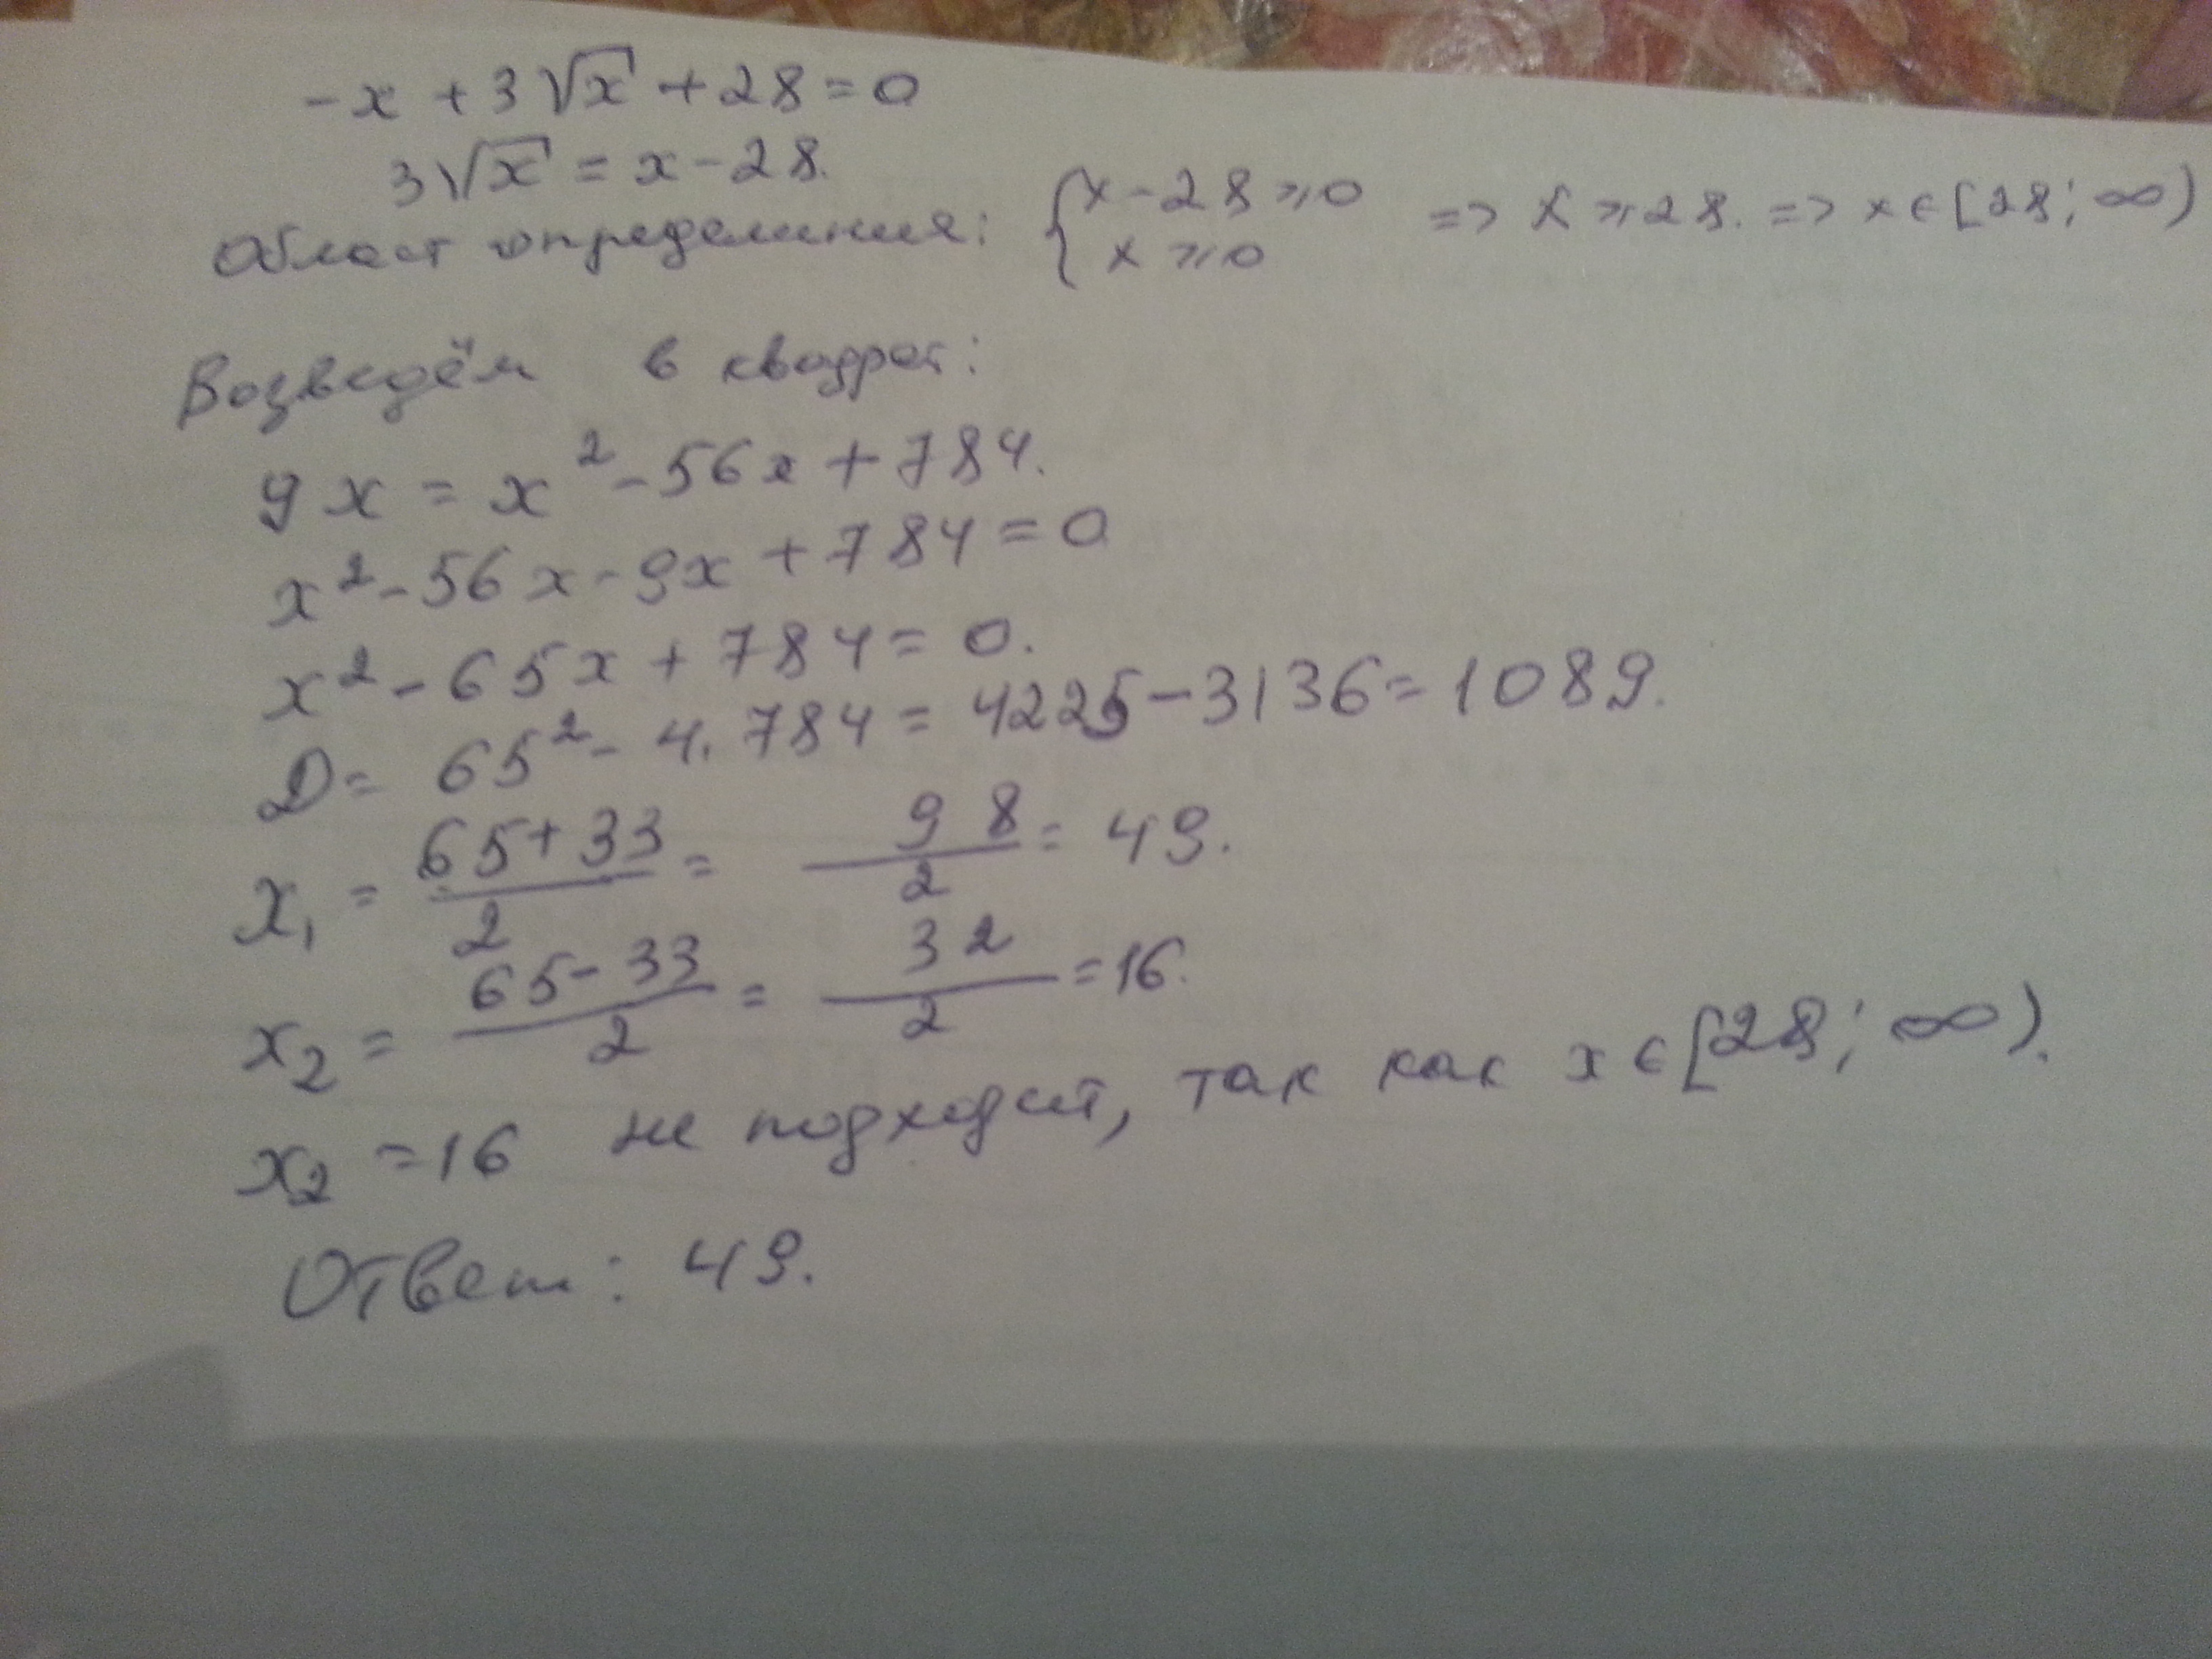 -x + 3√x + 28 = 0
3√x = x - 28.
Област определения: { x - 28 ⩾ 0 ; x ⩾ 0 => x ⩾ 28. => x ∈ [28; ∞)
Возведём в квадрат:
9x = x² - 56x + 784.
x² - 56x - 9x + 784 = 0
x² - 65x + 784 = 0.
D = 65² - 4. 784 = 4225 - 3136 = 1089.
x₁ = (65 + 33)/2 = 98/2 = 49.
x₂ = (65 - 33)/2 = 32/2 = 16.
x₂ = 16 не подходит, так как x ∈ [28; ∞).
Ответ: 49.